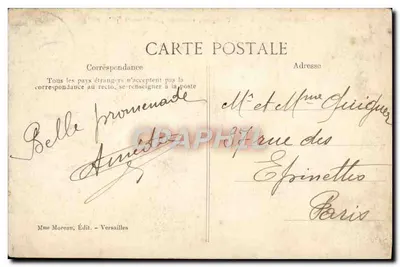 CARTE POSTALE
Correspondance
Tous les pays étrangers n'acceptent pas la
correspondance au recto, se renseigner à la poste
Belle promenade
Adresse
Mr et Mme
37 rue des
Epinettes
Paris
CPAPHIL.COM
Mme Moreau, Édit. - Versailles